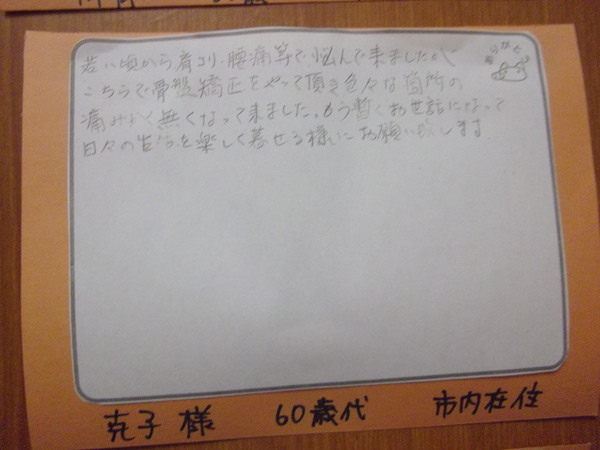 若い頃から、肩コリ、腰痛等で悩んで来ましたが
こちらで骨盤矯正をやって頂き色々な箇所の
痛みが無くなって来ました。もう暫くお世話になって
日々の生活を楽しく暮せる様にお願い致します
ありがとう
克子 様 60歳代 市内在住